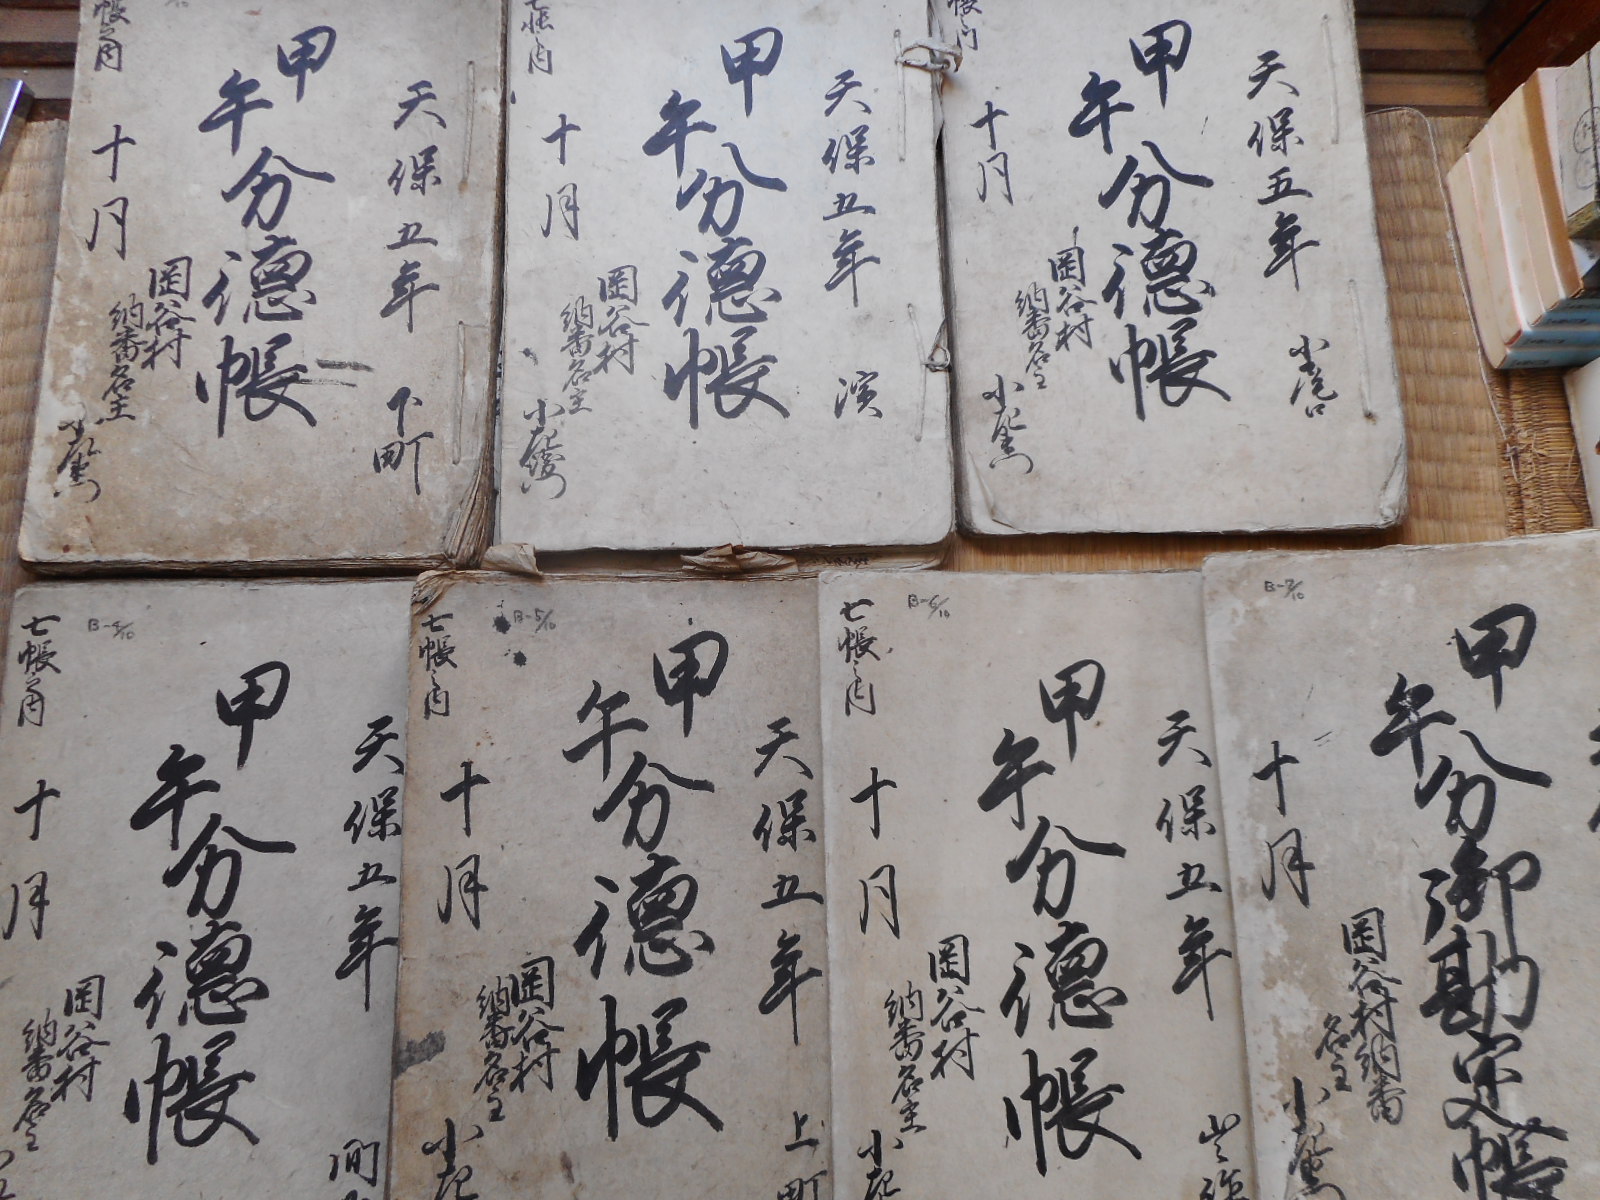 天保五年 下町
甲午分德帳
岡谷村
納番名主
十月
天保五年 濱
甲午分德帳
岡谷村
納番名主
十月
天保五年 小尾口
甲午分德帳
岡谷村
納番名主
十月
天保五年 間
甲午分德帳
岡谷村
納番名主
十月
七帳之內
B-4/10
天保五年 上町
甲午分德帳
岡谷村
納番名主
十月
七帳之內
B-5/10
天保五年
甲午分德帳
岡谷村
納番名主
十月
七帳之內
B-6/10
甲午分御勘定帳
岡谷村納番
名主
十月
B-7/10